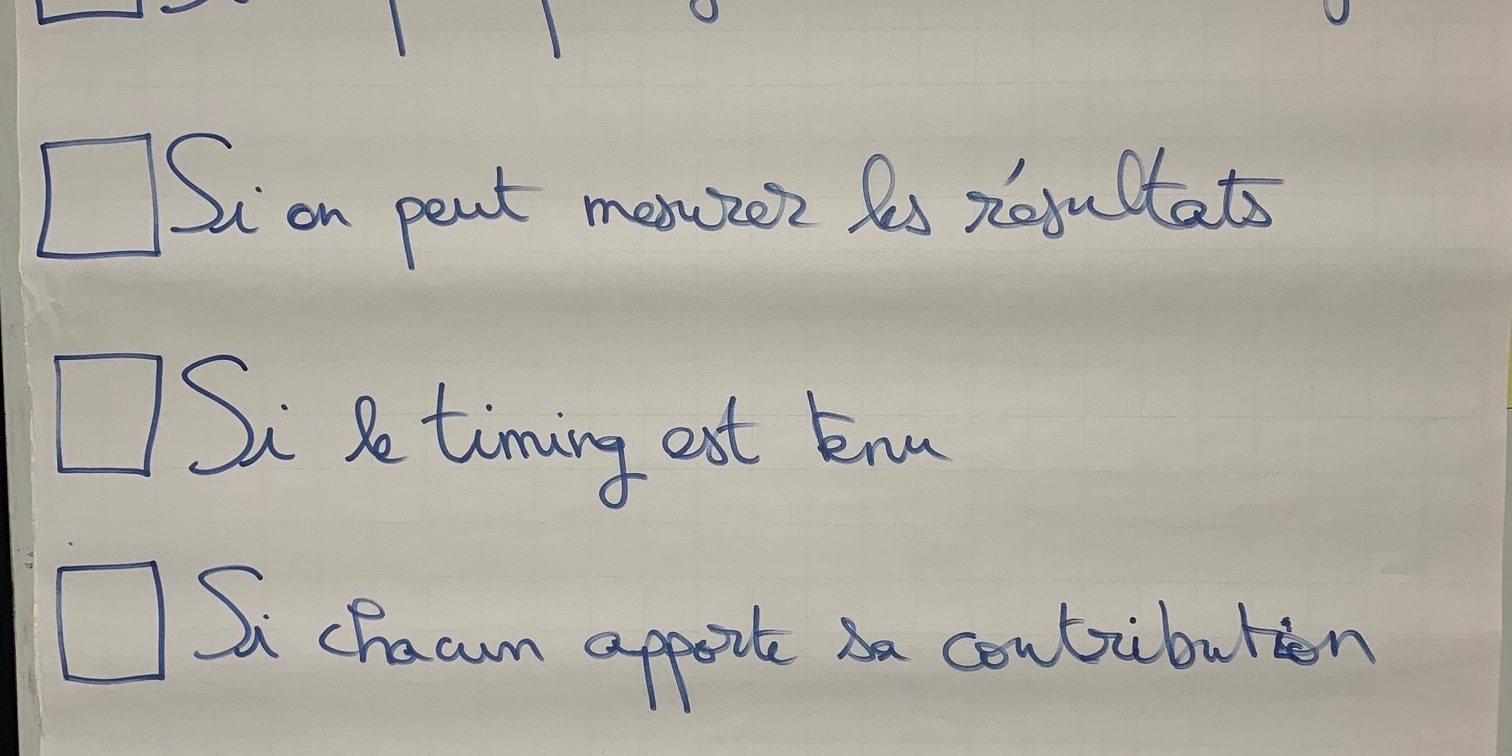 Si on peut mesurer les résultats
Si le timing est tenu
Si chacun apporte sa contribution